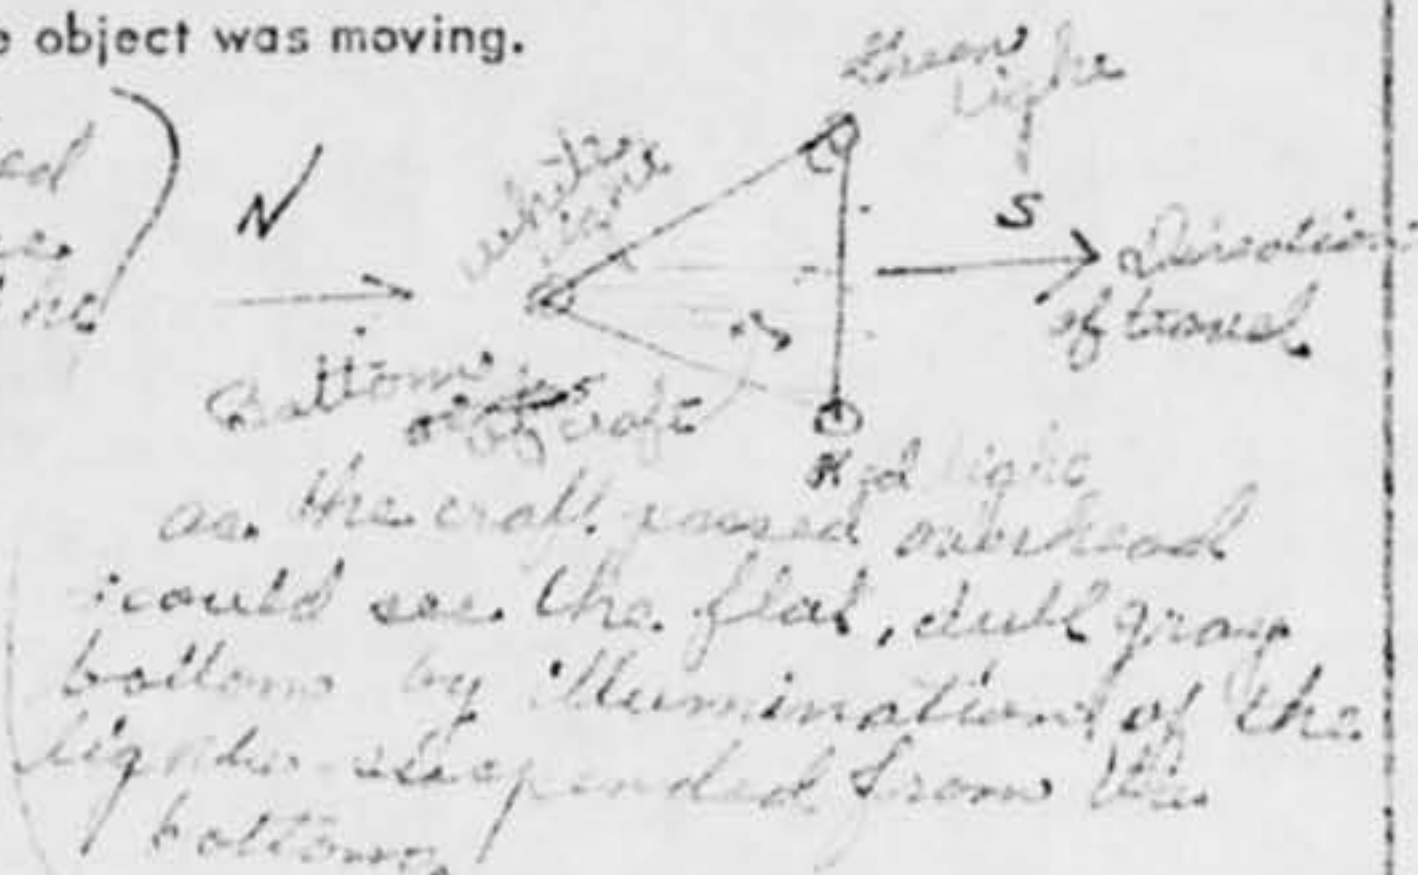 e object was moving.
Green
Light
ed
N
White
S
Direction
of travel
Bottom
of craft
Red light
as the craft passed overhead
i could see the flat, dull gray
bottom by illumination of the
lights suspended from the
bottom